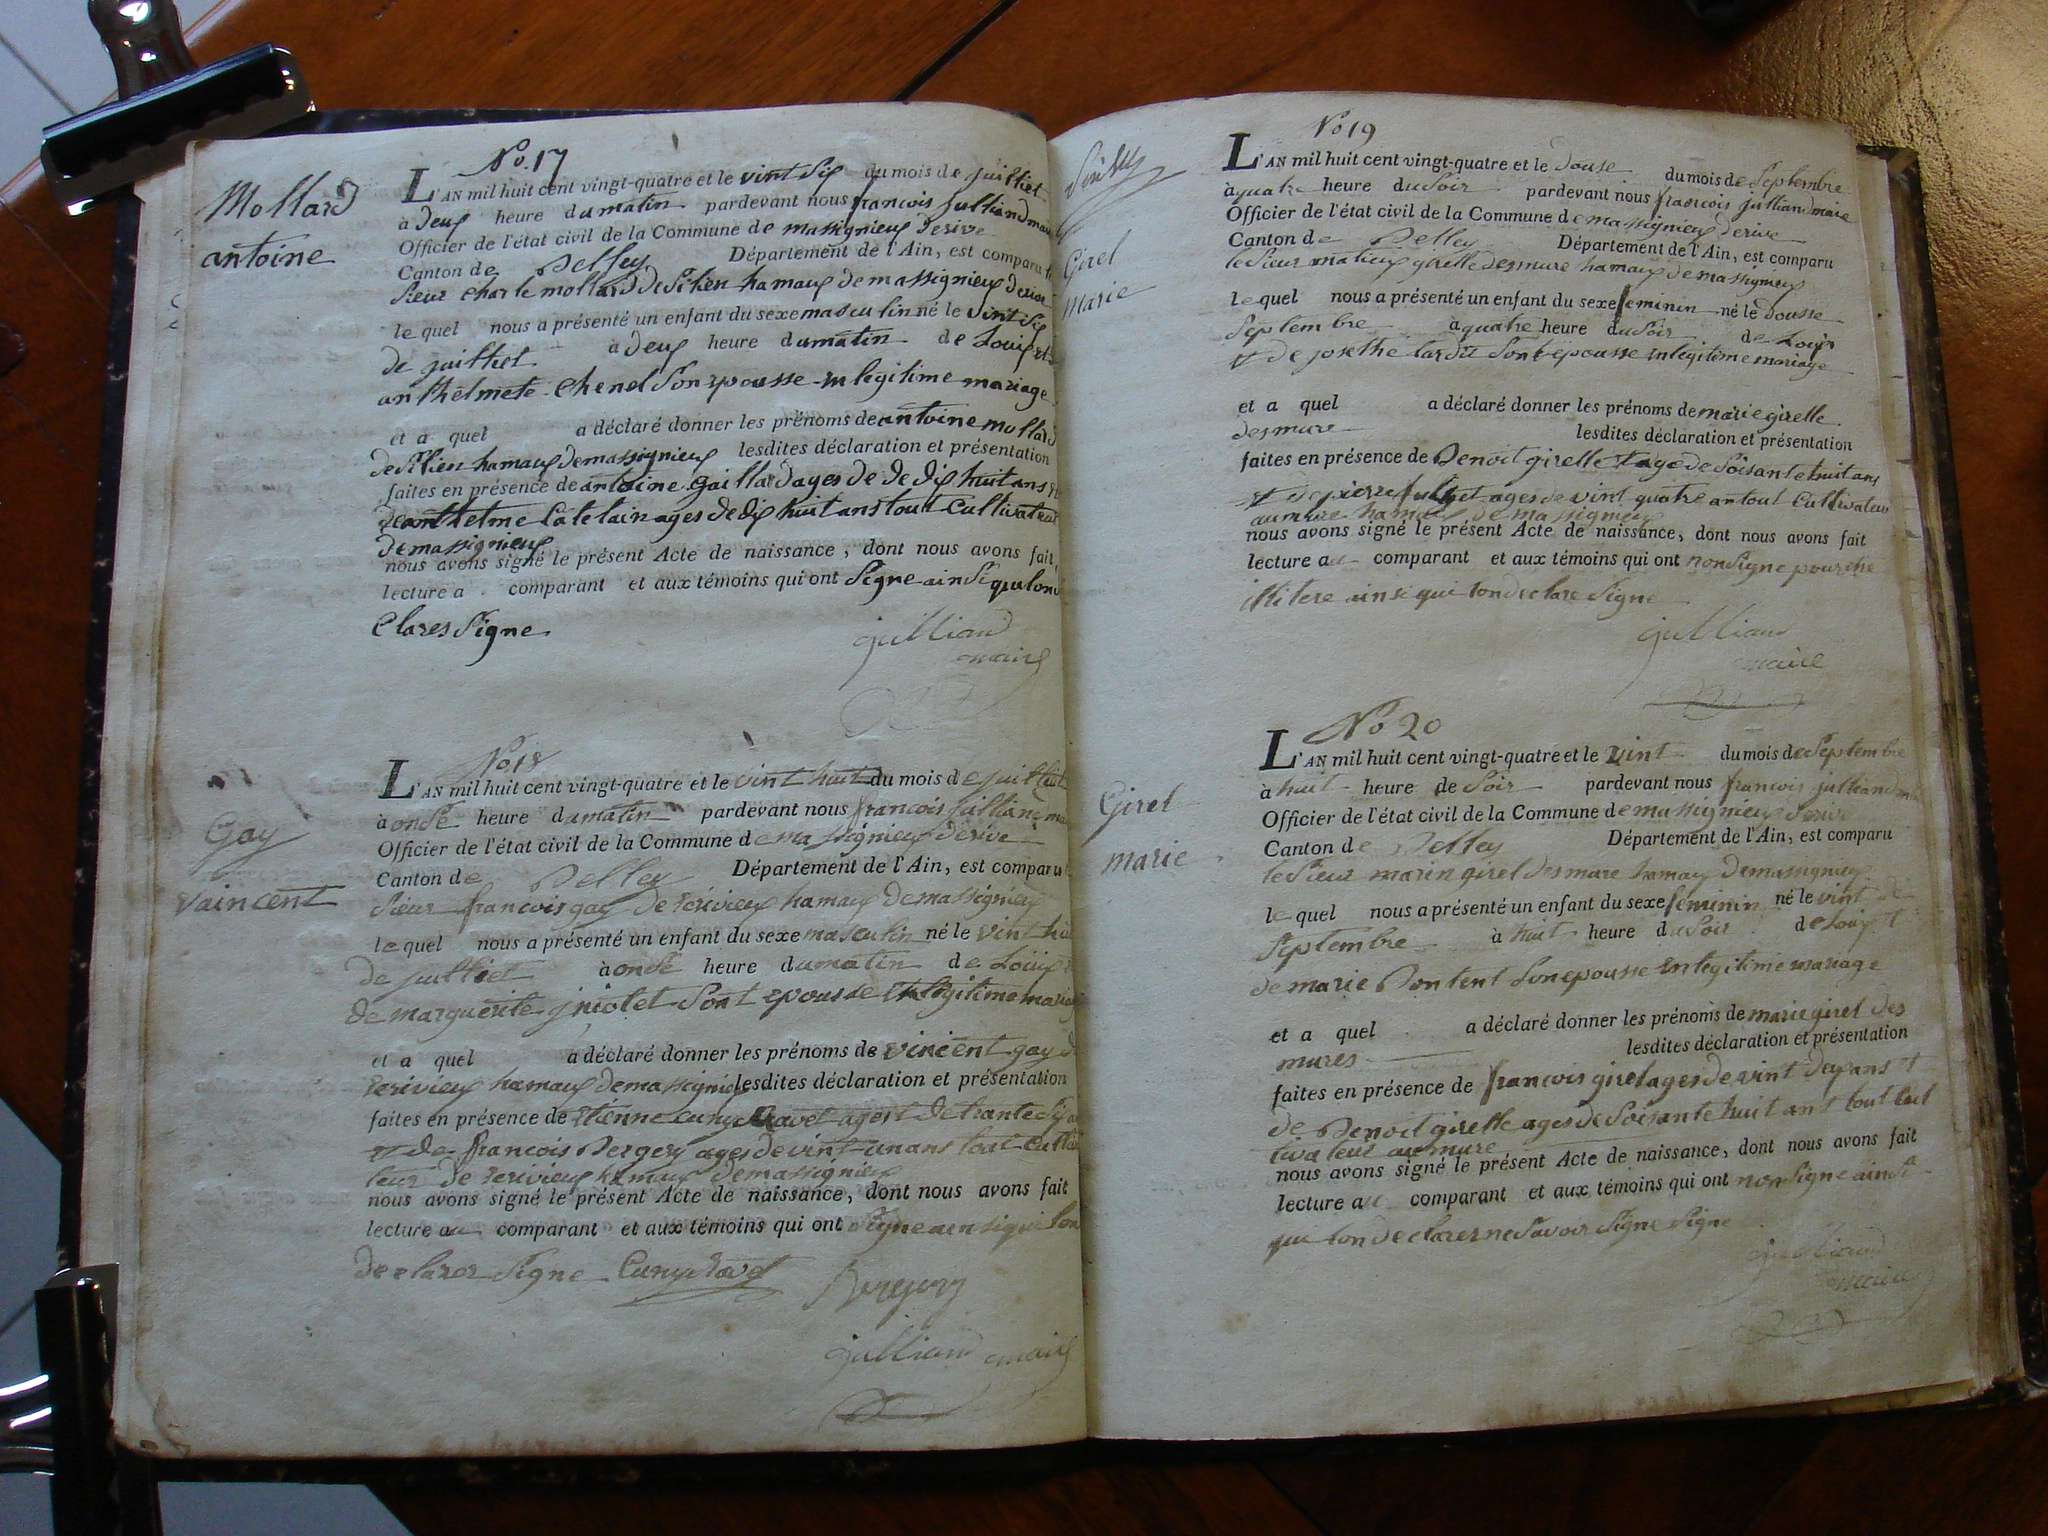 No. 17
Mollard
antoine
L'AN mil huit cent vingt-quatre et le vint Six du mois de juilliet
à deux heure dumatin pardevant nous francois julliand mair
Officier de l'état civil de la Commune de massignieux derive
Canton de Belley Département de l'Ain, est comparu le
Sieur charle mollard de hamaux de massignieux derive
lequel nous a présenté un enfant du sexe masculin né le vint Six
de juilliet à deux heure dumatin de Louis et de
anthelmete chenel Son epousse en legitime mariage
et a quel a déclaré donner les prénoms de antoine mollard
hamaux demassignieux lesdites déclaration et présentation
faites en présence de antoine gaillard ages de de dix huit ans et
de anthelme Catelain ages de dix huit ans tout Cultivateur
demassignieux
nous avons signé le présent Acte de naissance, dont nous avons fait
lecture a comparant et aux témoins qui ont Signe ainsi que lon de
Clares Signe
julliand
maire
No 18
Gay
vaincent
L'AN mil huit cent vingt-quatre et le vint huit du mois de juilliet
à onse heure dumatin pardevant nous francois julliand
Officier de l'état civil de la Commune de massignieux derive
Canton de Belley Département de l'Ain, est comparu le
Sieur francois gay de rerivieux hamaux demassignieux
lequel nous a présenté un enfant du sexe masculin né le vint huit
de julliet à onse heure dumatin de Louis
de marguerite jniolet Sont epousse en legitime mariage
et a quel a déclaré donner les prénoms de vincent gay de
rerivieux hamaux demassignieux lesdites déclaration et présentation
faites en présence de etienne cuny ravet ages de trante Six
et de francois Bergery ages de vint un ans tout cultiva
teur de rerivieux hamaux demassignieux
nous avons signé le présent Acte de naissance, dont nous avons fait
lecture au comparant et aux témoins qui ont Signe ain si que lon
declarer Signe Cuny Ravet
julliand maire
No 19
Girel
Marie
L'AN mil huit cent vingt-quatre et le douse du mois de Septembre
à quatre heure du Soir pardevant nous francois julliand maire
Officier de l'état civil de la Commune de massignieux derive
Canton de Belley Département de l'Ain, est comparu
le Sieur matieux girelle desmure hamaux demassignieux
lequel nous a présenté un enfant du sexe feminin né le dousse
Septembre à quatre heure du Soir de Louis
et de josethe Sont epousse en legiteme mariage
et a quel a déclaré donner les prénoms de marie girelle
desmure lesdites déclaration et présentation
faites en présence de Benoit girelle age de Soisante huit ans
et de pierre ages de vint quatre an tout Cultivateur
aumure hamaux de massignieux
nous avons signé le présent Acte de naissance, dont nous avons fait
lecture au comparant et aux témoins qui ont non Signe pour
illitere ainsi que lon declare Signe
julliand
maire
No 20
Girel
marie
L'AN mil huit cent vingt-quatre et le vint du mois de Septembre
à huit heure de Soir pardevant nous francois julliand
Officier de l'état civil de la Commune de massignieux derive
Canton de Belley Département de l'Ain, est comparu
le Sieur marin girel desmure hamaux demassignieux
lequel nous a présenté un enfant du sexe feminin né le vint de
Septembre à huit heure du Soir de Louis et
de marie Bontent Son epousse en legitime mariage
et a quel a déclaré donner les prénoms de marie girel des
mures lesdites déclaration et présentation
faites en présence de francois girel ages de vint deux ans et
de Benoit girelle ages de Soisante huit ans tout Cul
tivateur aumure
nous avons signé le présent Acte de naissance, dont nous avons fait
lecture au comparant et aux témoins qui ont non Signe ainsi
que lon declarer ne Savoir Signe Signe
julliand
maire